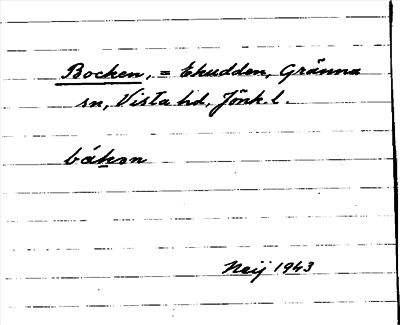 Bocken, = Ekudden, Gränna
sn, Vista hd, Jönk. l.
båkən
Neij 1943